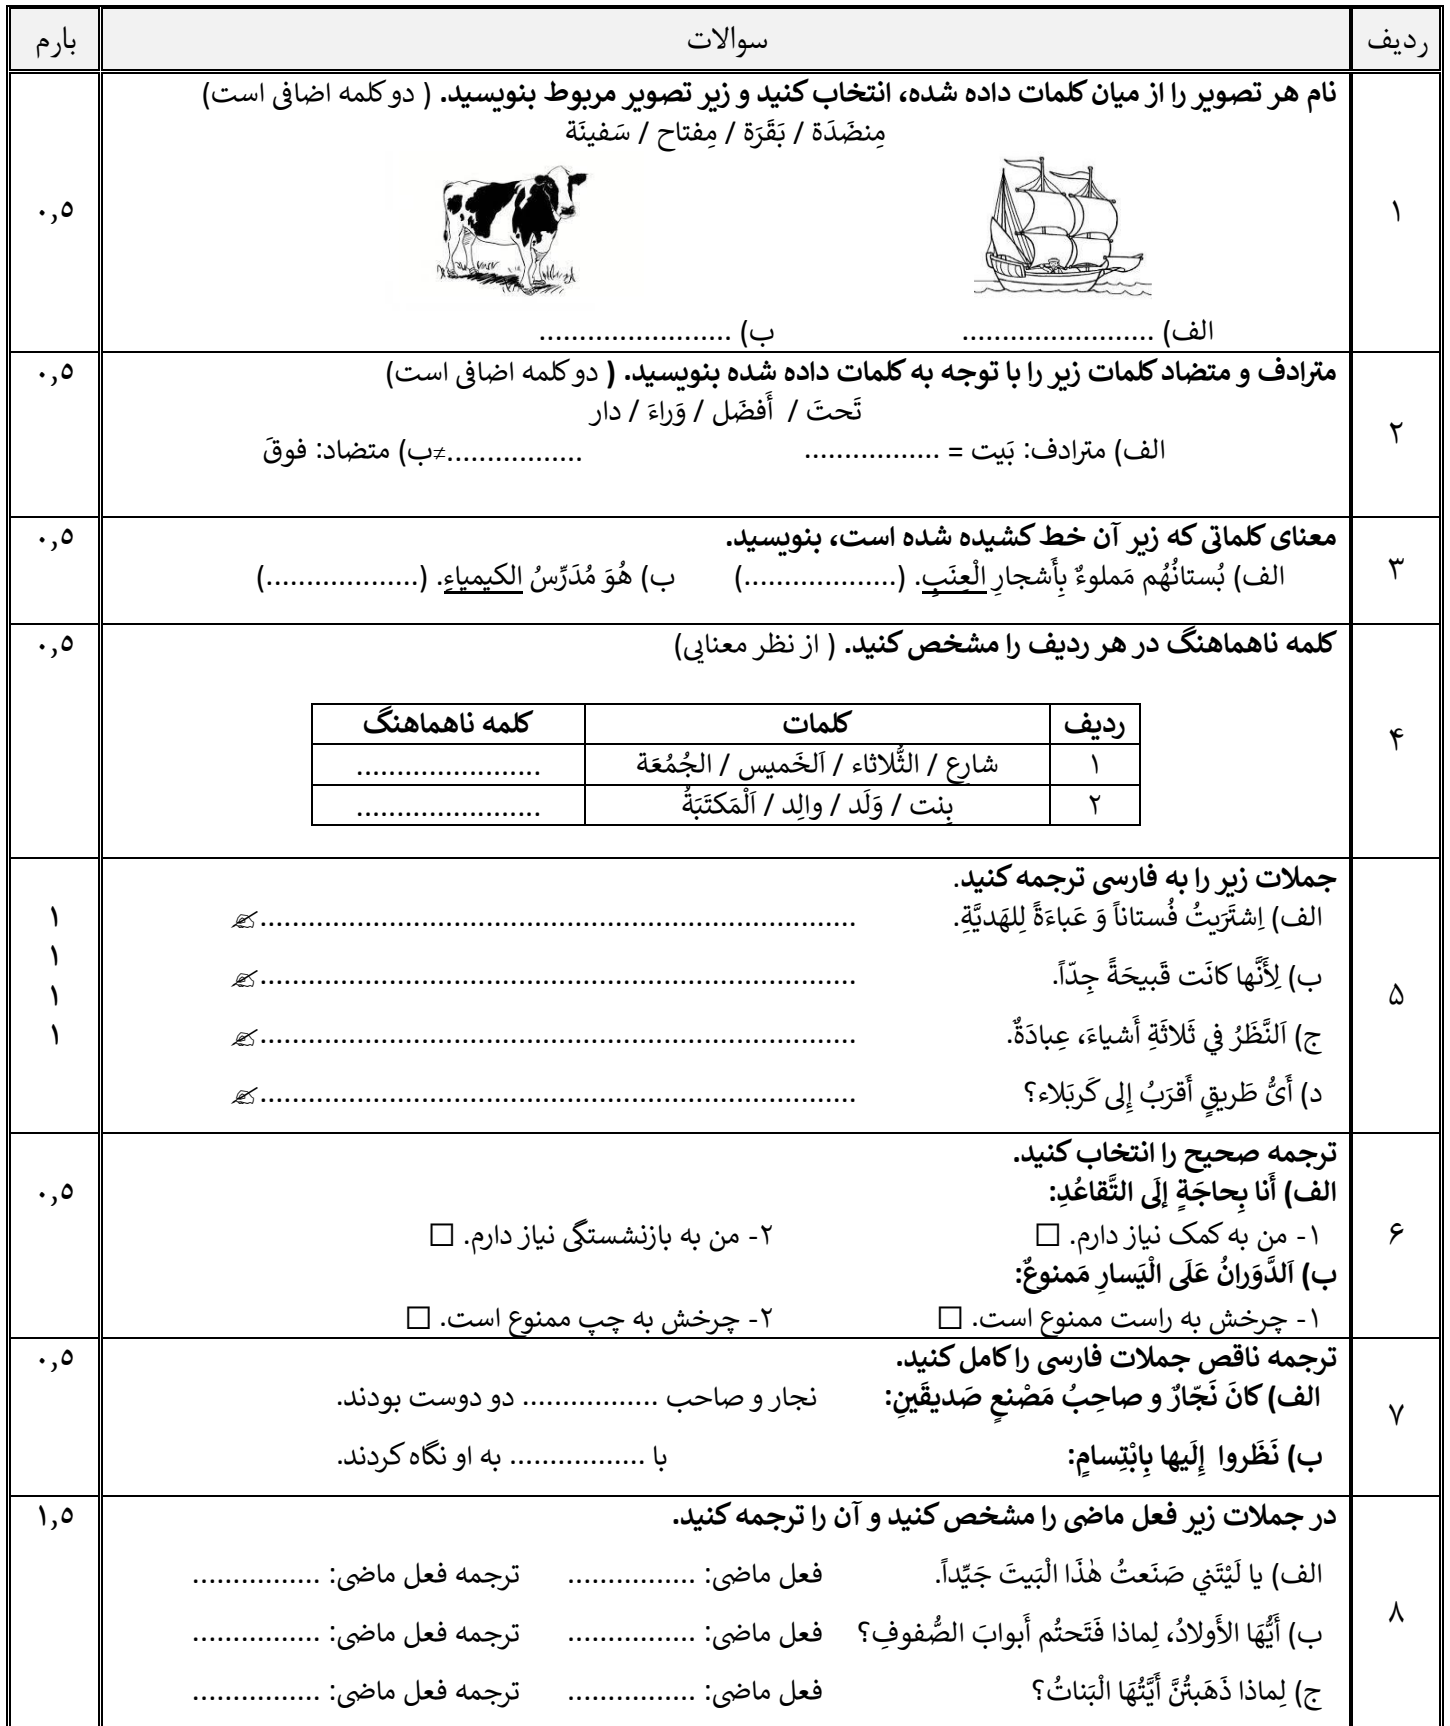 ردیف سوالات بارم
نام هر تصویر را از میان کلمات داده شده، انتخاب کنید و زیر تصویر مربوط بنویسید. ( دو کلمه اضافی است)
مِنضَدَة / بَقَرَة / مِفتاح / سَفینَة
۱ ۰,۵
الف) ........................ ب) ........................
مترادف و متضاد کلمات زیر را با توجه به کلمات داده شده بنویسید. ( دو کلمه اضافی است) ۰,۵
تَحتَ / أَفضَل / وَراءَ / دار
۲
الف) مترادف: بَیت = ................. ب) متضاد: فوقَ≠.................
معنای کلماتی که زیر آن خط کشیده شده است، بنویسید. ۰,۵
۳ الف) بُستانُهُم مَملوءٌ بِأَشجارِ الْعِنَبِ. (...................) ب) هُوَ مُدَرِّسُ الکیمیاءِ. (...................)
کلمه ناهماهنگ در هر ردیف را مشخص کنید. ( از نظر معنایی) ۰,۵
۴
ردیف کلمات کلمه ناهماهنگ
۱ شارِع / الثُّلاثاء / اَلخَمیس / الجُمُعَة .......................
۲ بِنت / وَلَد / والِد / اَلْمَکتَبَةُ .......................
جملات زیر را به فارسی ترجمه کنید.
الف) اِشتَرَیتُ فُستاناً وَ عَباءَةً لِلهَدیَّةِ. ..........................................................................✍ ۱
ب) لِأَنَّها کانَت قَبیحَةً جِدّاً. ..........................................................................✍ ۱
۵ ۱
ج) اَلنَّظَرُ فِي ثَلاثَةِ أَشیاءَ، عِبادَةٌ. ..........................................................................✍ ۱
د) أَيُّ طَریقٍ أَقرَبُ إِلی کَربَلاء؟ ..........................................................................✍
ترجمه صحیح را انتخاب کنید.
الف) أَنا بِحاجَةٍ إلَی التَّقاعُدِ: ۰,۵
۶ ۱- من به کمک نیاز دارم. □ ۲- من به بازنشستگی نیاز دارم. □
ب) اَلدَّوَرانُ عَلَی الْیَسارِ مَمنوعٌ:
۱- چرخش به راست ممنوع است. □ ۲- چرخش به چپ ممنوع است. □
ترجمه ناقص جملات فارسی را کامل کنید. ۰,۵
الف) کانَ نَجّارٌ و صاحِبُ مَصْنعٍ صَدیقَینِ: نجار و صاحب ................. دو دوست بودند.
۷
ب) نَظَروا إِلَیها بِابْتِسامٍ: با ................. به او نگاه کردند.
در جملات زیر فعل ماضی را مشخص کنید و آن را ترجمه کنید. ۱,۵
الف) یا لَیْتَنِي صَنَعتُ هٰذَا الْبَیتَ جَیِّداً. فعل ماضی: ................ ترجمه فعل ماضی: ................
۸
ب) أَیُّهَا الأَولادُ، لِماذا فَتَحتُم أَبوابَ الصُّفوفِ؟ فعل ماضی: ................ ترجمه فعل ماضی: ................
ج) لِماذا ذَهَبتُنَّ أَیَّتُهَا الْبَناتُ؟ فعل ماضی: ................ ترجمه فعل ماضی: ................